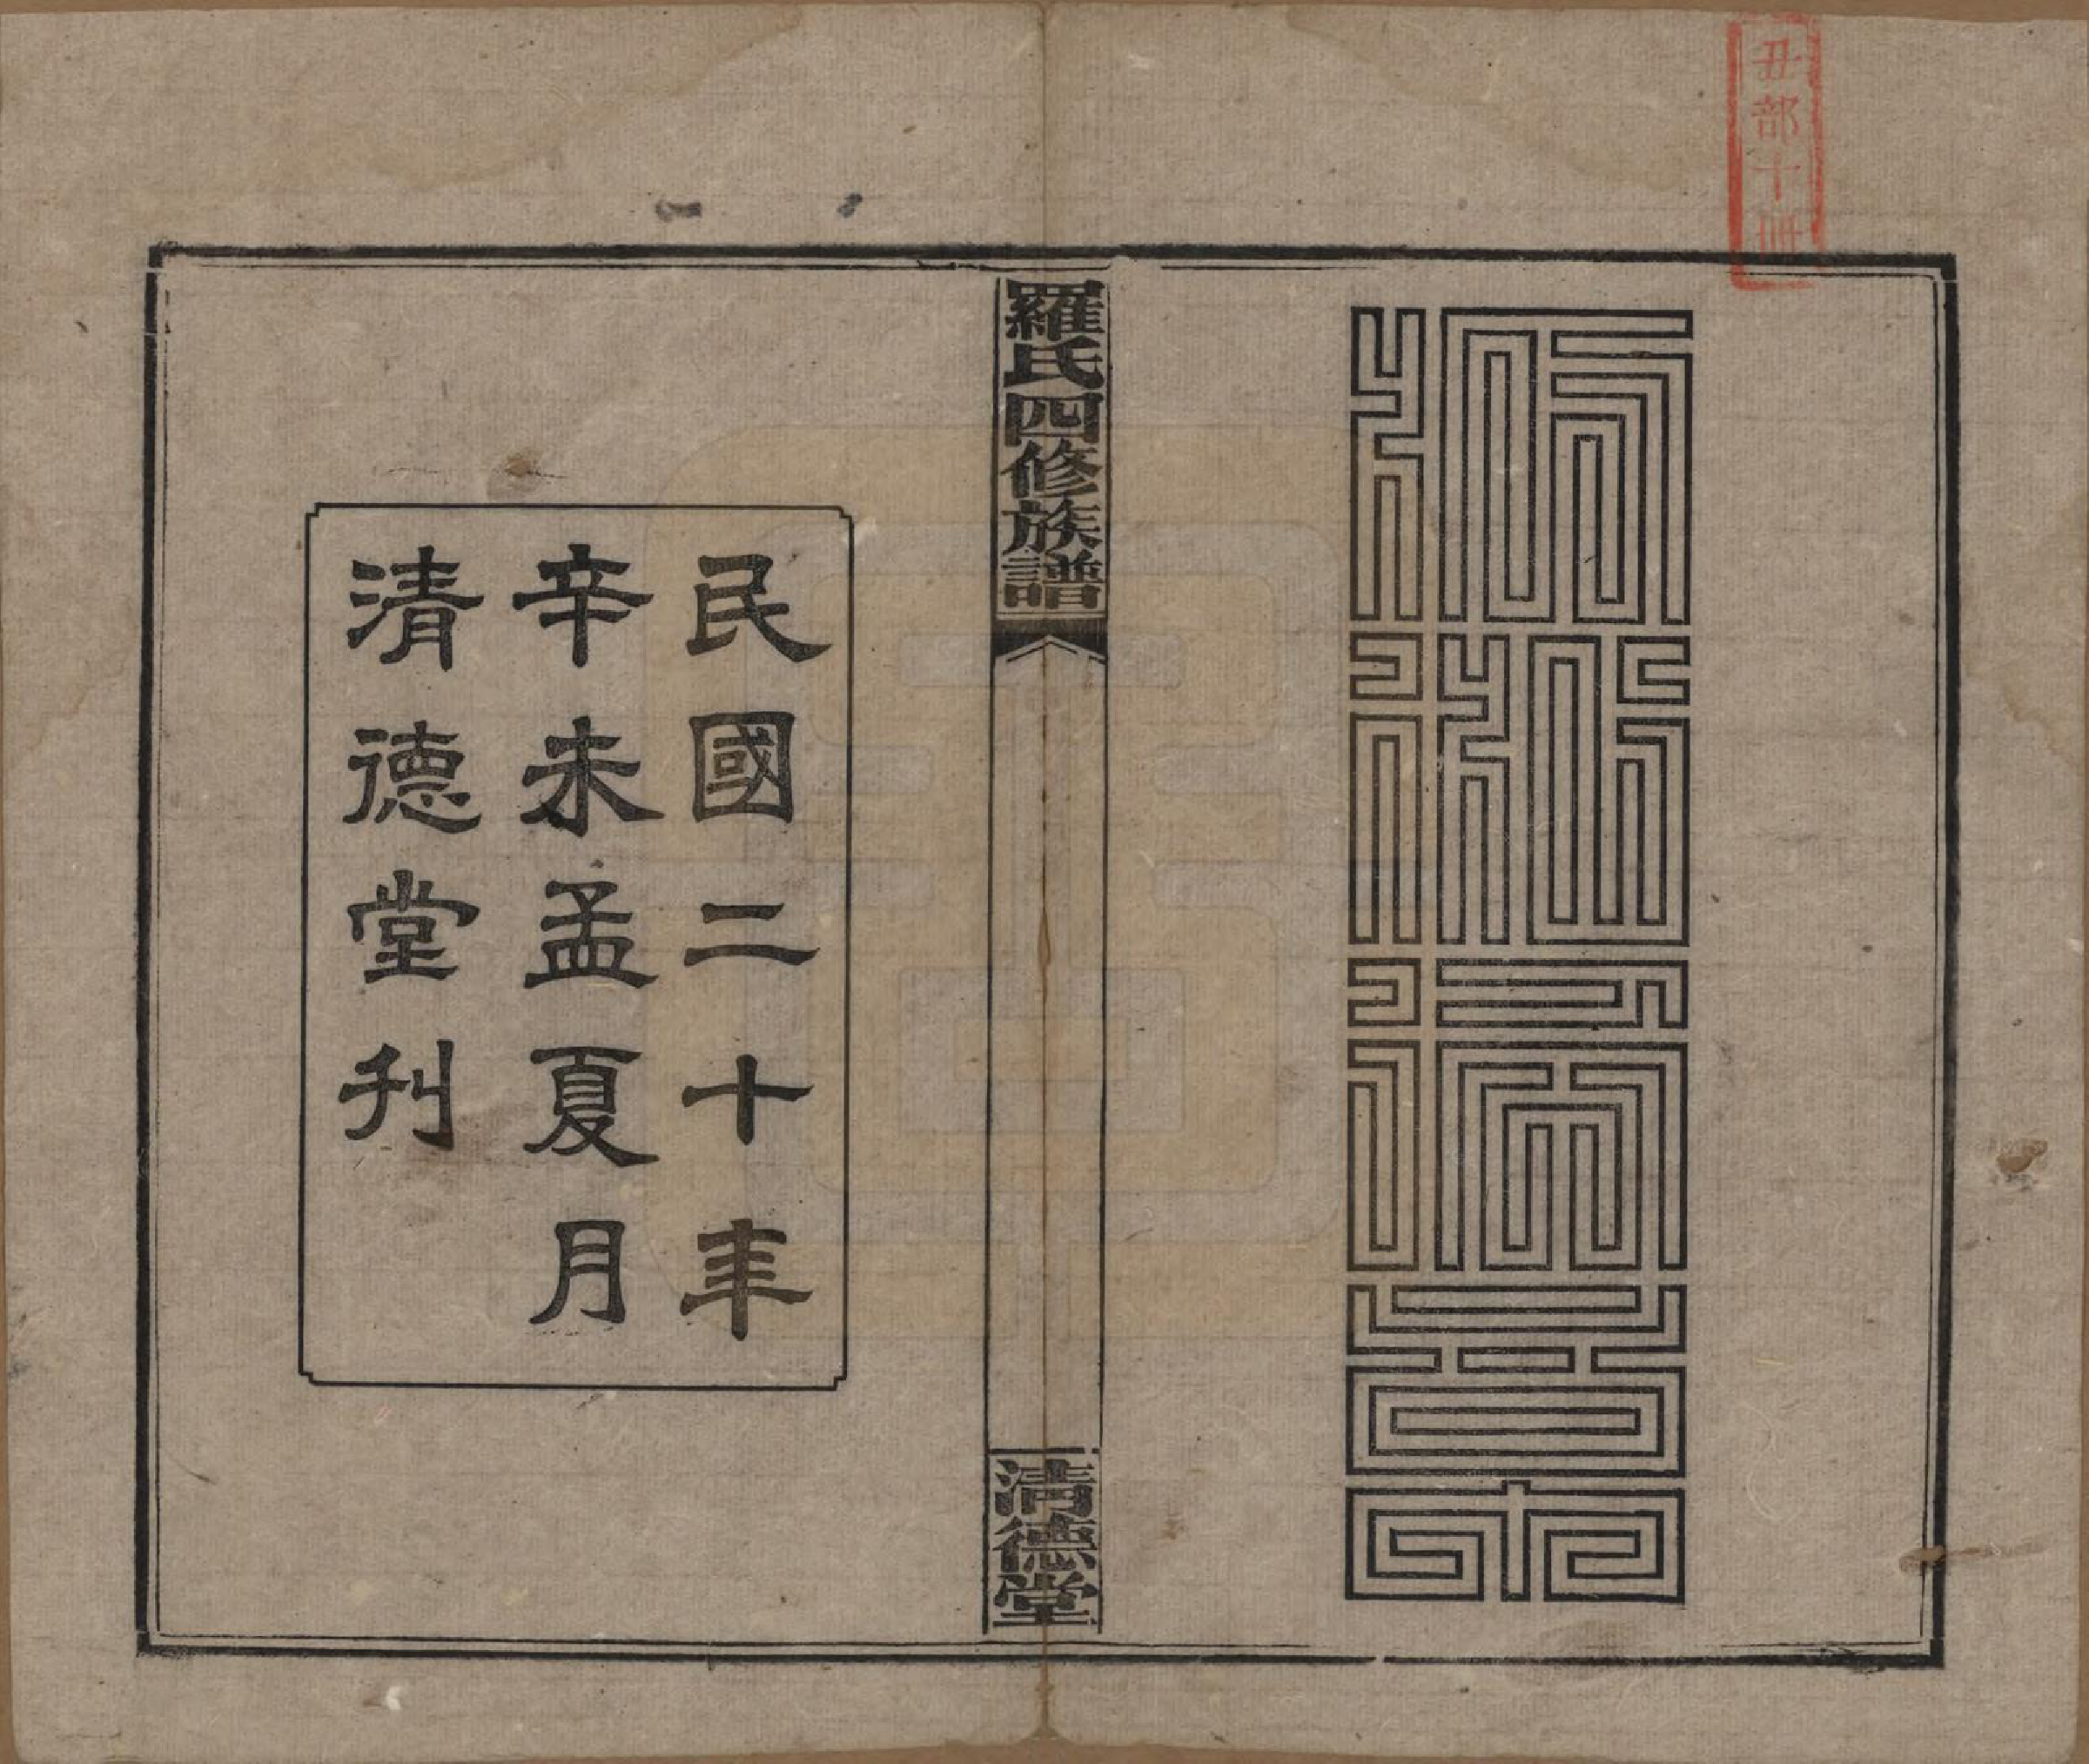 丑部十冊
羅氏四修族譜
清德堂
民國二十年
辛未孟夏月
清德堂刊